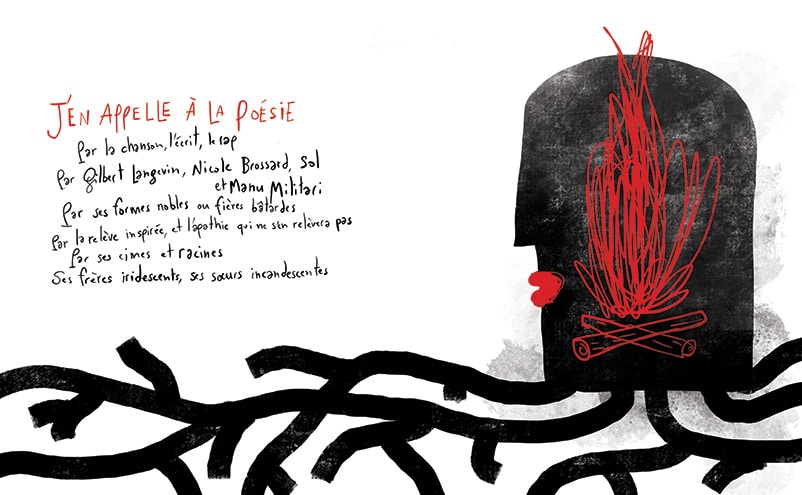 J'EN APPELLE À LA POÉSIE
Par la chanson, l'écrit, le rap
Par Gilbert Langevin, Nicole Brossard, Sol
et Manu Militari
Par ses formes nobles ou fières bâtardes
Par la relève inspirée, et l'apathie qui ne s'en relèvera pas
Par ses cimes et racines
Ses frères iridescents, ses sœurs incandescentes